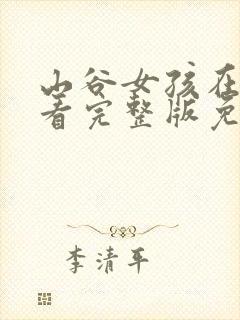 山谷女孩在
看完整版免
李清平